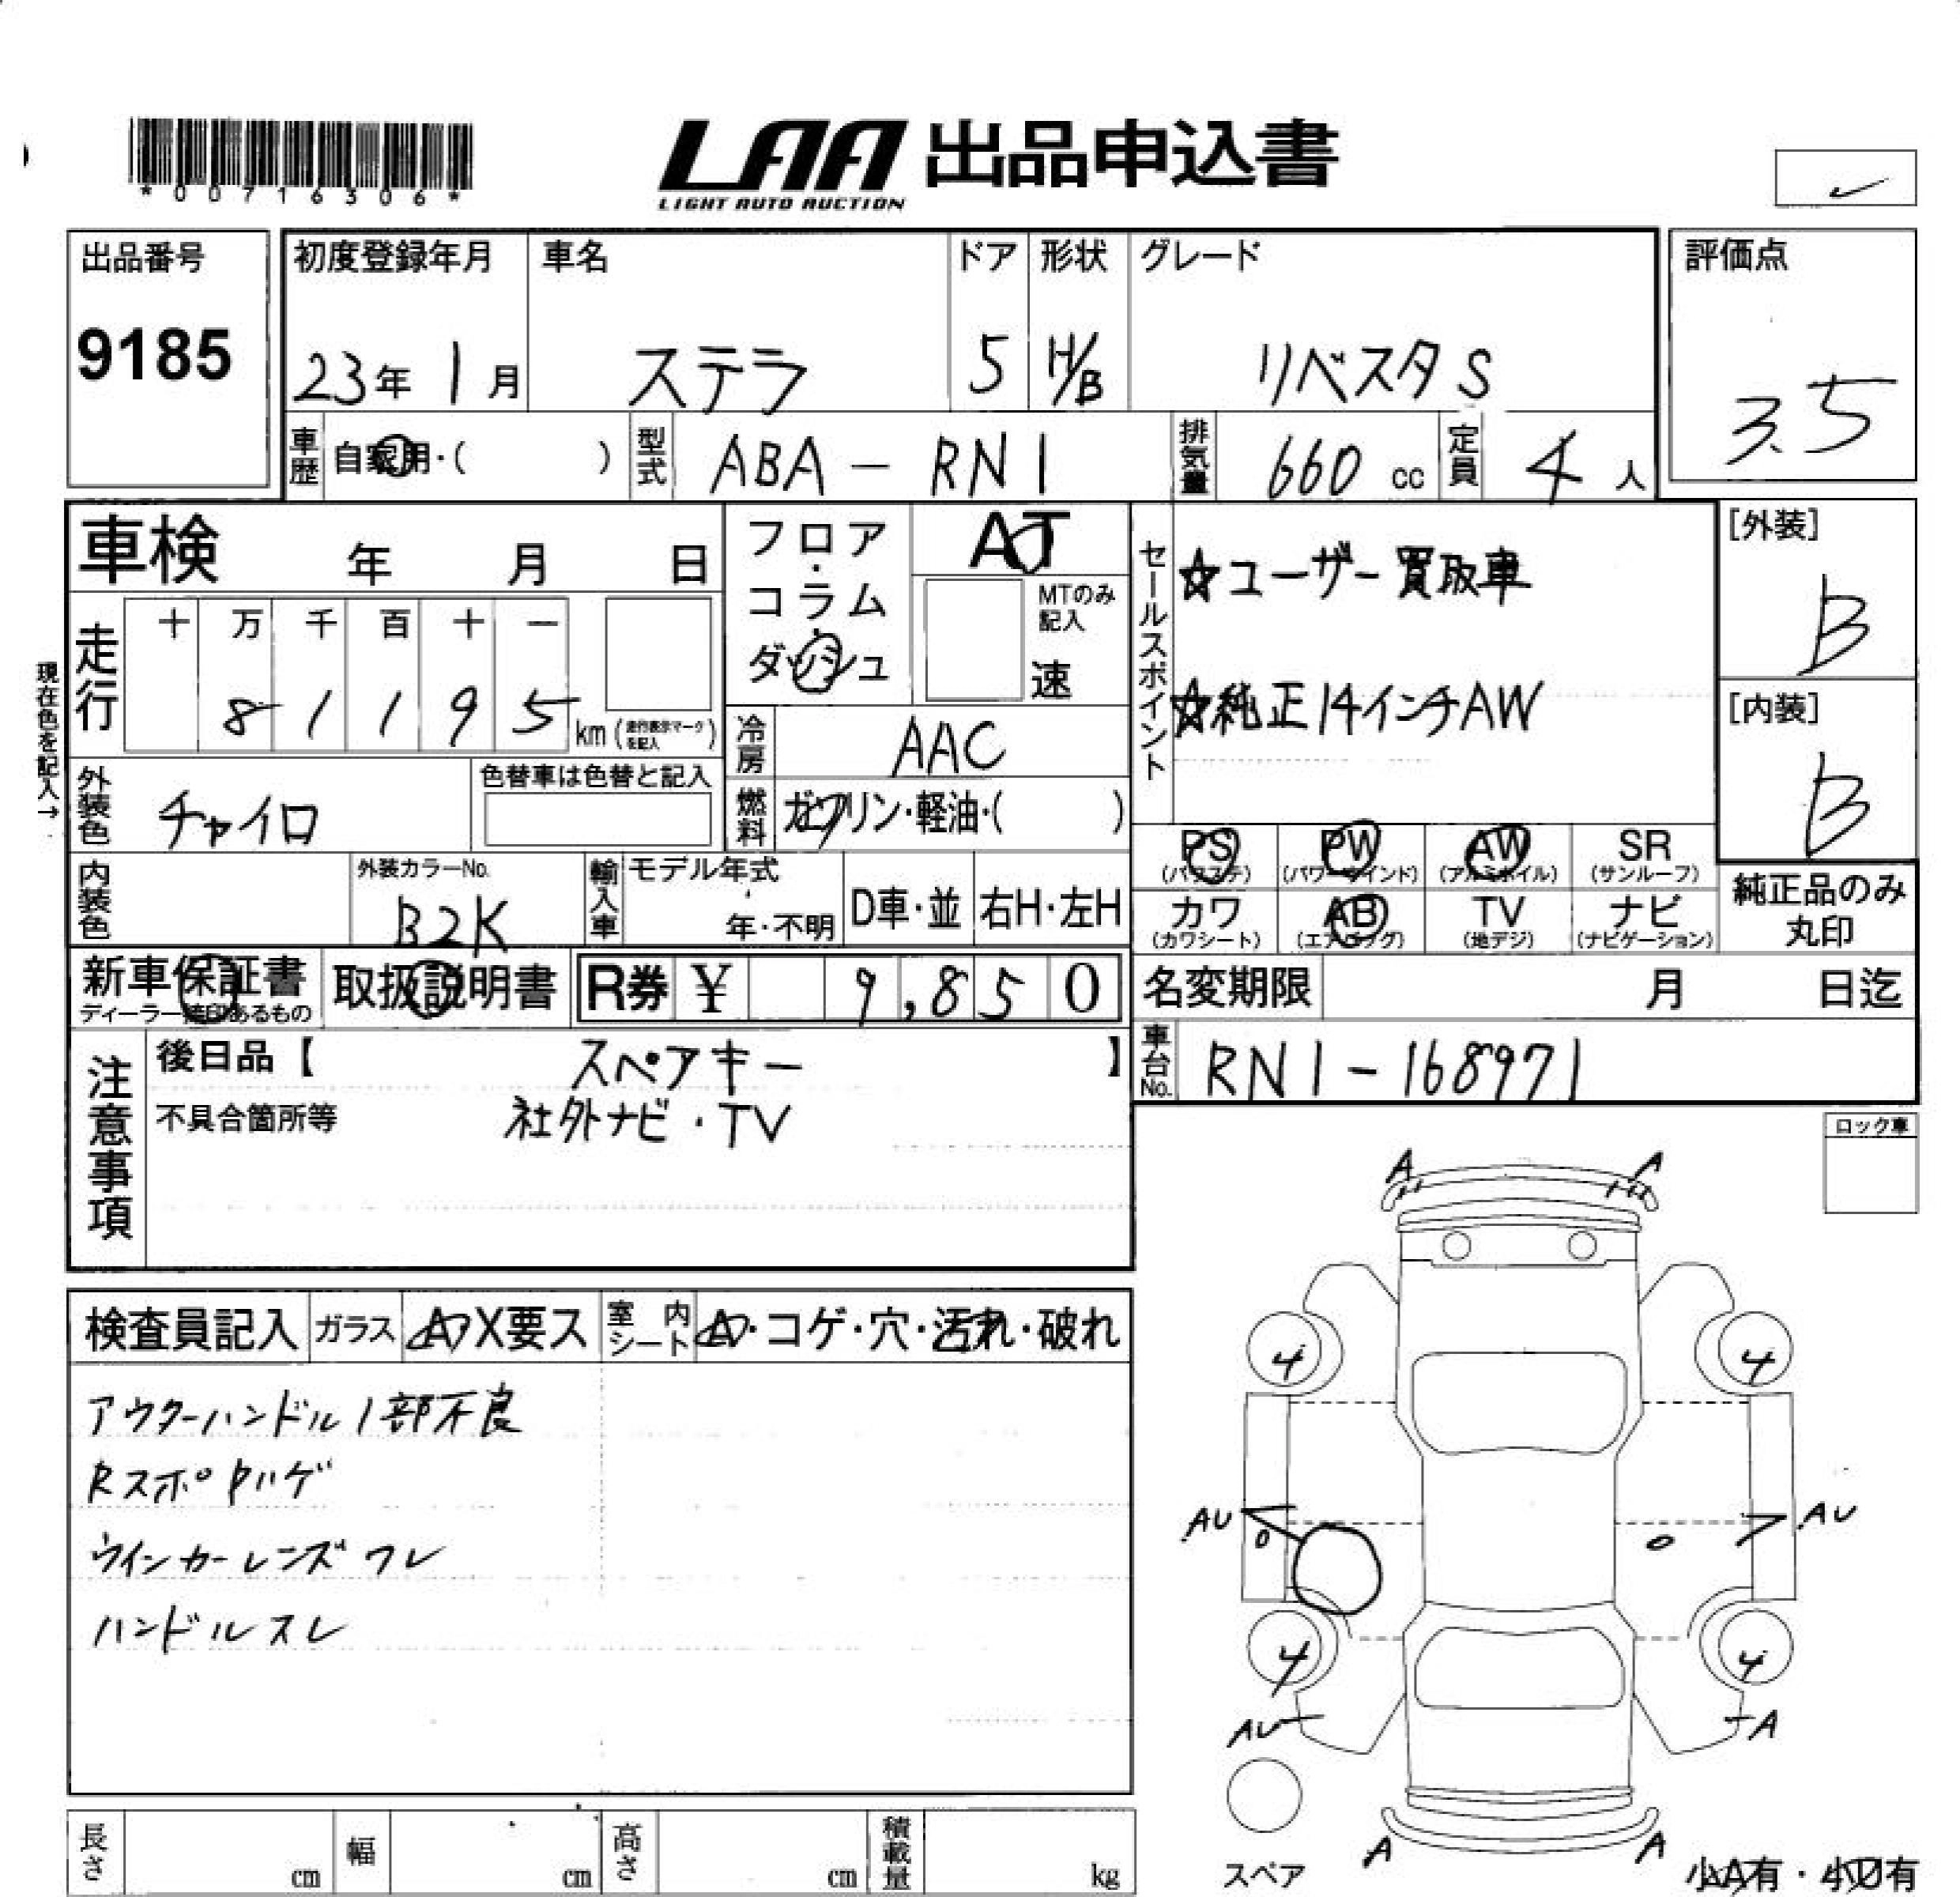 *00716306*
LAA 出品申込書
LIGHT AUTO AUCTION
出品番号
9185
初度登録年月
23年 1月
車名
ステラ
ドア
5
形状
H/B
グレード
リベスタ S
評価点
3.5
車歴
自家用・( )
型式
ABA - RN1
排気量
660 cc
定員
4 人
車検 年 月 日
フロア・コラム・ダッシュ
AT
MTのみ記入
速
セールスポイント
☆ユーザー買取車
☆純正14インチAW
[外装]
B
[内装]
B
現在色を記入→
走行
十 万 千 百 十 一
8 1 1 9 5 km (走行表示マークを記入)
冷房
AAC
外装色
チャイロ
色替車は色替と記入
燃料
ガソリン・軽油・( )
PS (パワステ)
PW (パワーウインド)
AW (アルミホイル)
SR (サンルーフ)
カワ (カワシート)
AB (エアバッグ)
TV (地デジ)
ナビ (ナビゲーション)
純正品のみ丸印
内装色
外装カラーNo.
B2K
輸入車
モデル年式
年・不明
D車・並
右H・左H
新車保証書
ディーラー捺印あるもの
取扱説明書
R券 ¥ 9,850
名変期限 月 日迄
車台No.
RN1-168971
注意事項
後日品【 スペアキー 】
不具合箇所等 社外ナビ・TV
ロック車
検査員記入
ガラス
A X要ス
室内シート
A・コゲ・穴・汚れ・破れ
アウターハンドル1部不良
Rスポ ハゲ
ウインカーレンズ ワレ
ハンドル スレ
A A
4 4
AU AU
4 4
AU A
A A
スペア
小A有・小U有
長さ cm
幅 cm
高さ cm
積載量 kg